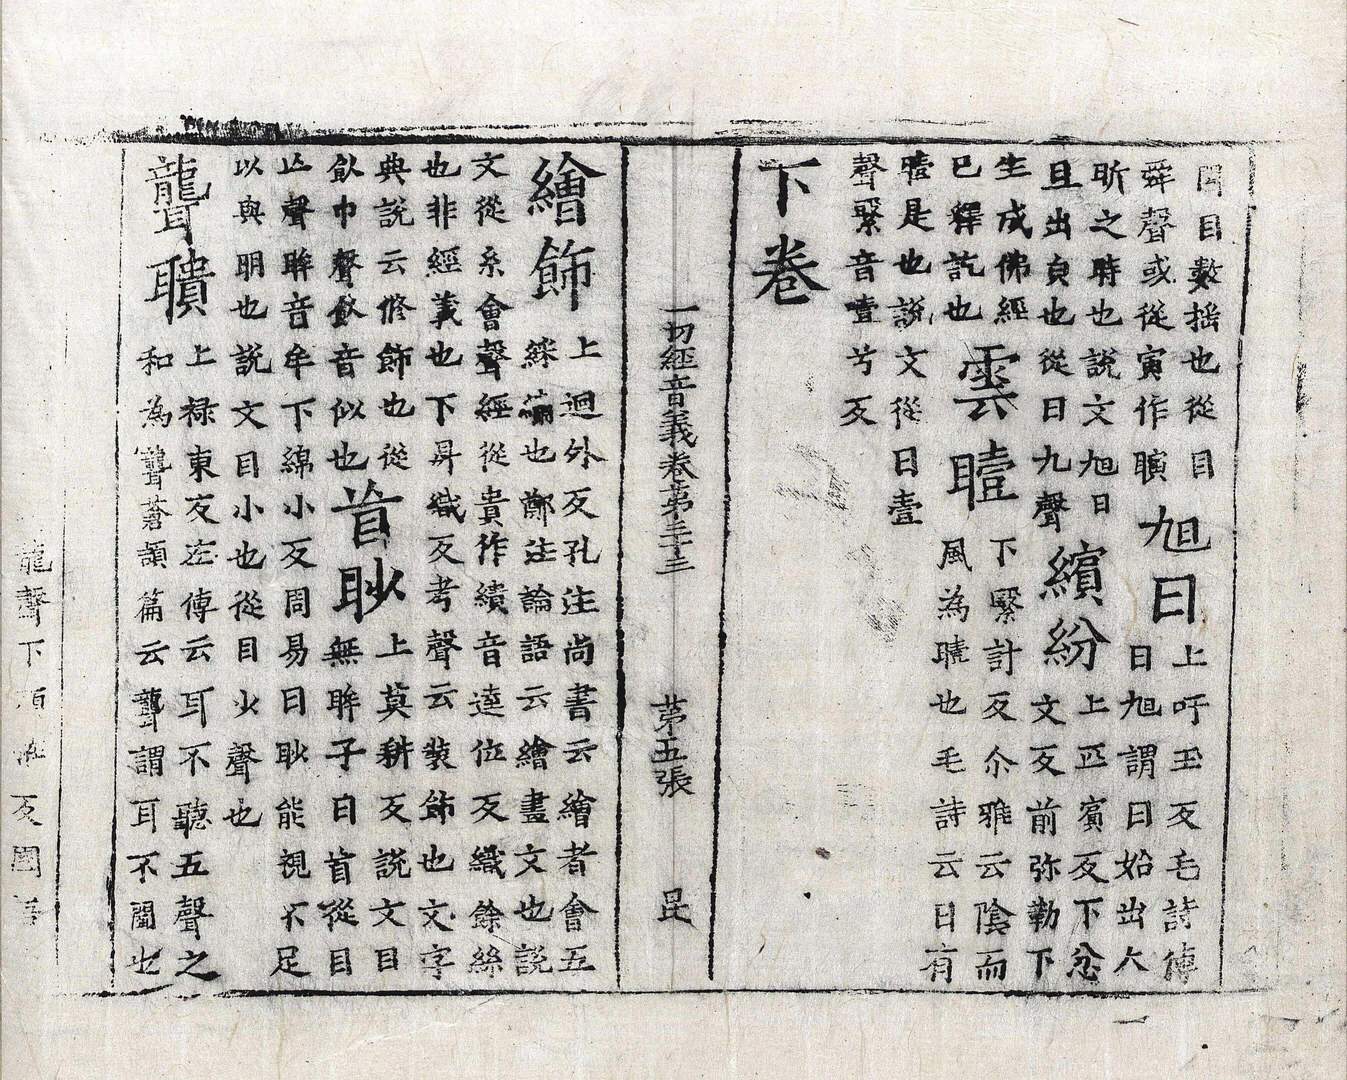 目數搖也從目
舜聲或從寅作瞚
旭日
上吁玉反毛詩傳
日旭謂日始出大
昕之時也說文旭日
旦出皃也從日九聲
繽紛
上匹賓反下忿
文反前弥勒下
生成佛經
已釋訖也
雲曀
下緊計反尒雅云陰而
風為曀也毛詩云日有
曀是也說文從日壹
聲緊音壹兮反
下卷
一切經音義卷第三十三 第五張 昆
繪飾
上迴外反孔注尚書云繪者會五
綵繡也鄭注論語云繪畫文也說
文從糸會聲經從貴作繢音達位反織餘絲
也非經義也下昇織反考聲云裝飾也文字
典說云修飾也從
飤巾聲飤音似也
首眇
上莫耕反說文目
無眸子曰首從目
亾聲眸音牟下綿小反周易曰眇能視不足
以與明也說文目小也從目少聲也
聾聵
上祿東反左傳云耳不聽五聲之
和為聾蒼頡篇云聾謂耳不聞也
龍聲下頑恠反國語